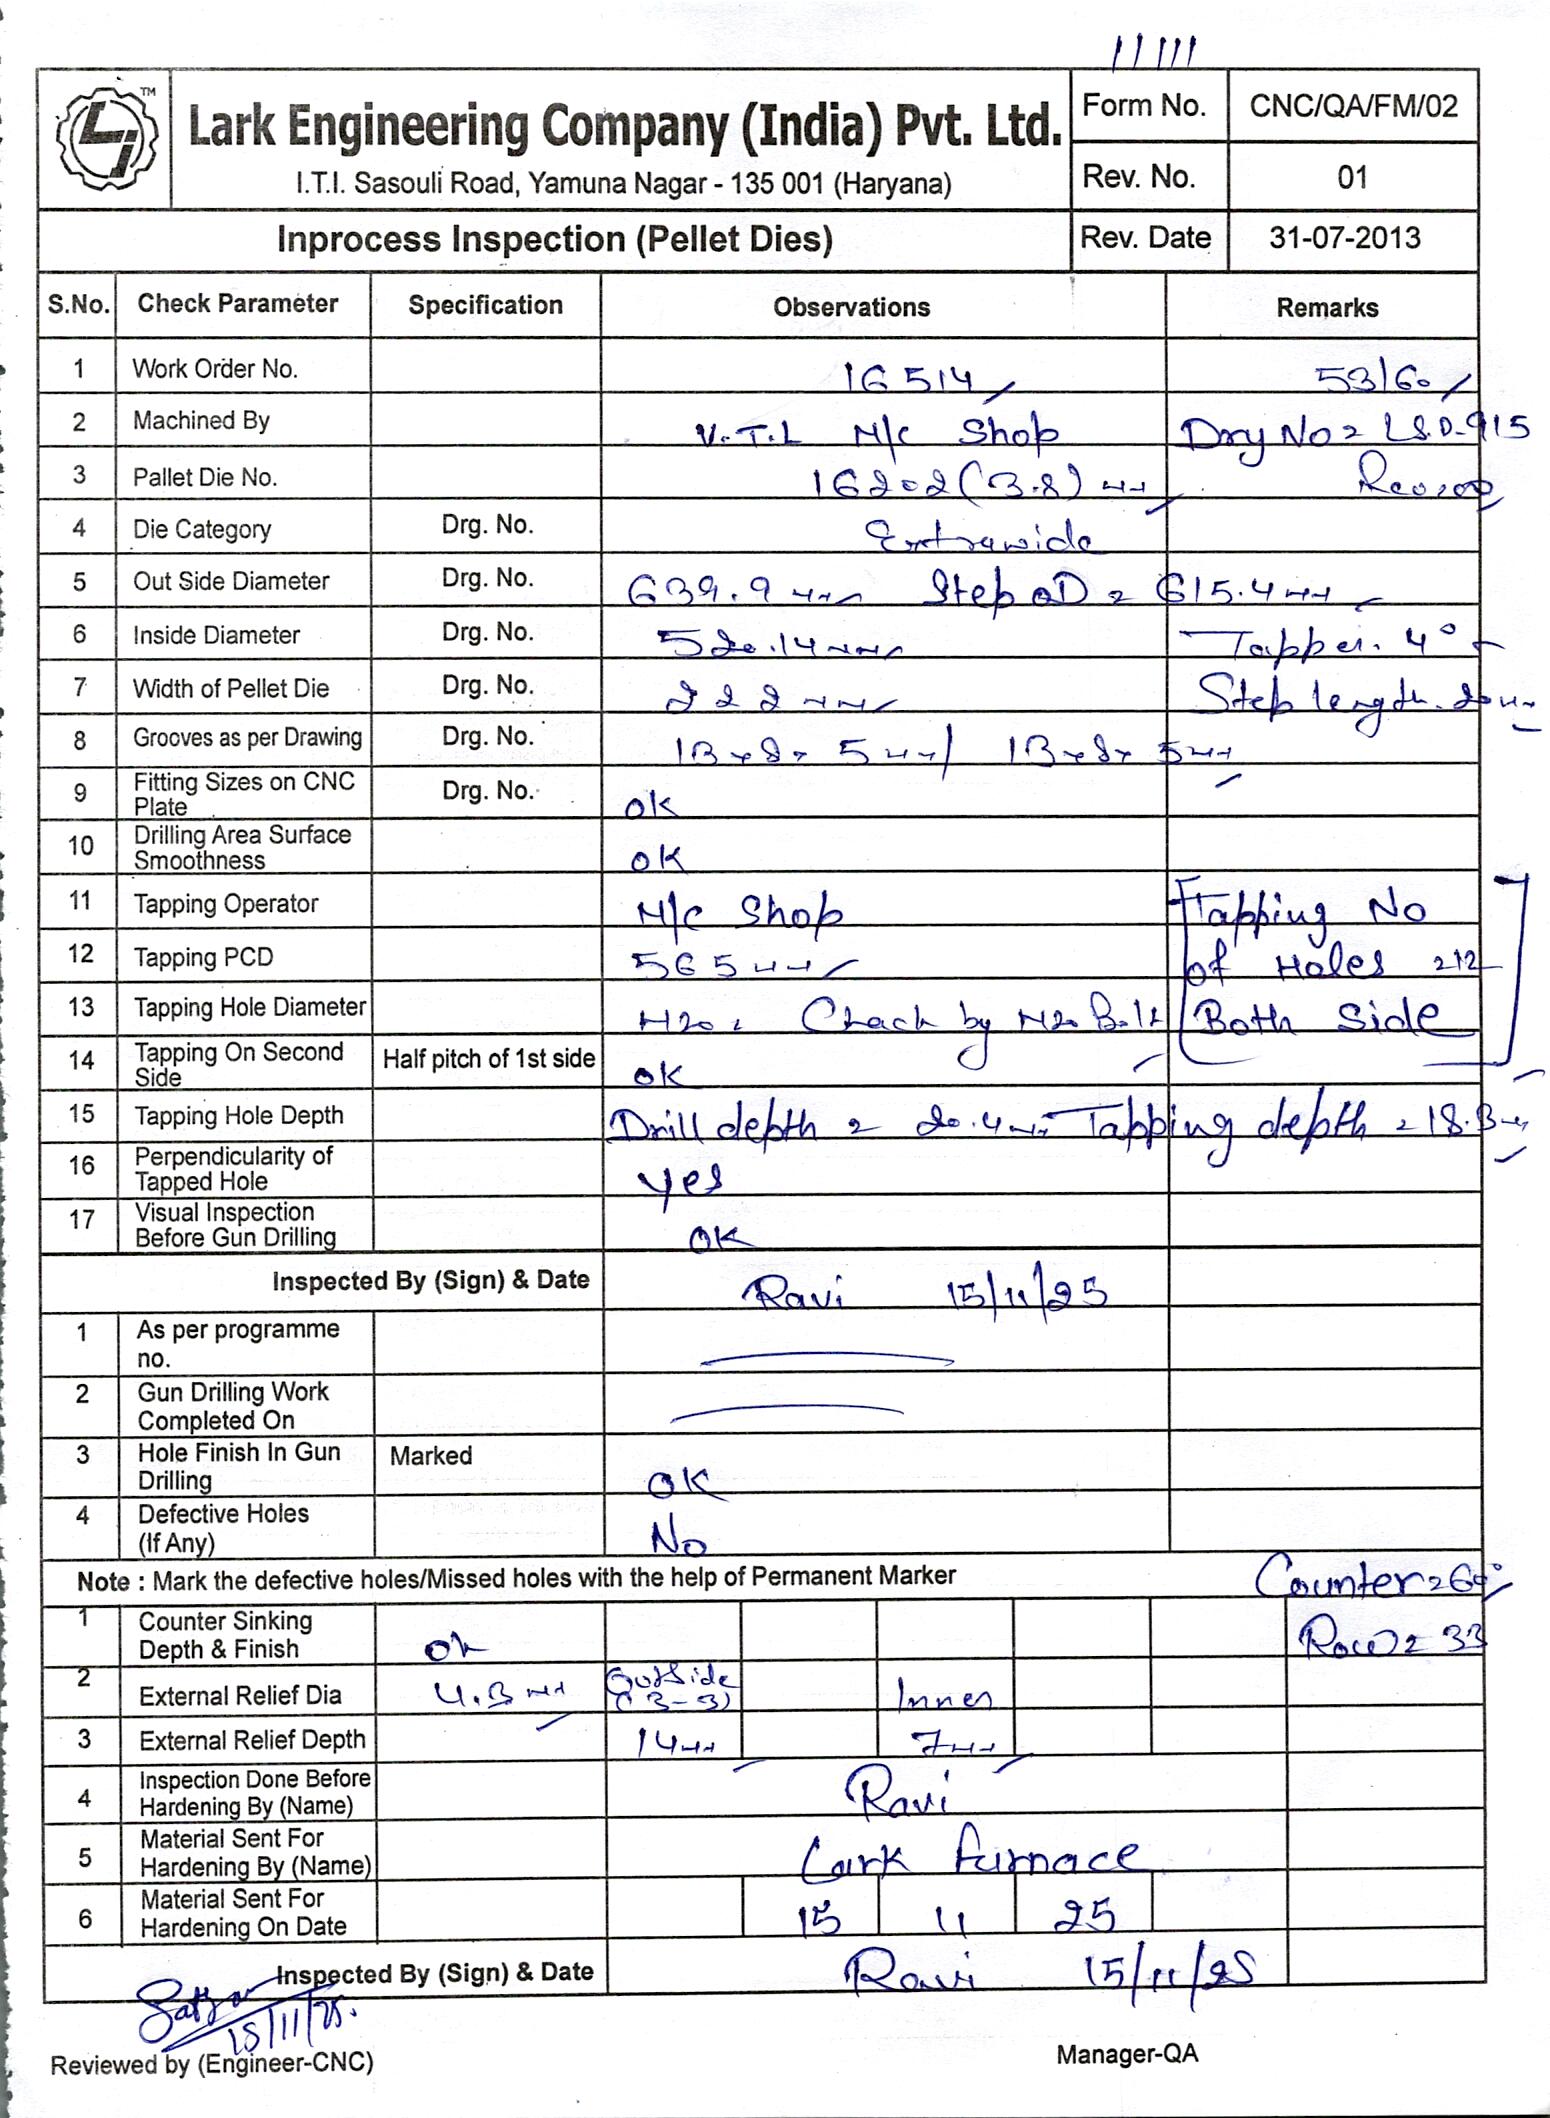 Lark Engineering Company (India) Pvt. Ltd.
TM
I.T.I. Sasouli Road, Yamuna Nagar - 135 001 (Haryana)
Form No. CNC/QA/FM/02
Rev. No. 01
Inprocess Inspection (Pellet Dies) Rev. Date 31-07-2013
S.No. Check Parameter Specification Observations Remarks
1 Work Order No. 16514 53/60
2 Machined By V.T.L M/c Shop Drg No = LSD-915
3 Pallet Die No. 16202 (3.8) mm
4 Die Category Drg. No. Extrawide
5 Out Side Diameter Drg. No. 639.9 mm Step OD = 615.4 mm
6 Inside Diameter Drg. No. 520.14 mm Tapper. 4°
7 Width of Pellet Die Drg. No. 222 mm Step length. 20 mm
8 Grooves as per Drawing Drg. No. 13 x 8 x 5 mm / 13 x 8 x 5 mm
9 Fitting Sizes on CNC Plate Drg. No. ok
10 Drilling Area Surface Smoothness ok
11 Tapping Operator M/c Shop Tapping No
12 Tapping PCD 565 mm of Holes = 12
13 Tapping Hole Diameter M20, Chack by M20 Bolt Both Side
14 Tapping On Second Side Half pitch of 1st side ok
15 Tapping Hole Depth Drill depth = 20.4 mm Tapping depth = 18.3 mm
16 Perpendicularity of Tapped Hole yes
17 Visual Inspection Before Gun Drilling OK
Inspected By (Sign) & Date Ravi 15/11/25
1 As per programme no.
2 Gun Drilling Work Completed On
3 Hole Finish In Gun Drilling Marked OK
4 Defective Holes (If Any) No
Note : Mark the defective holes/Missed holes with the help of Permanent Marker Counter = 60°
1 Counter Sinking Depth & Finish ok Row = 33
2 External Relief Dia 4.3 mm OutSide (3-3) Inner
3 External Relief Depth 14 mm 7 mm
4 Inspection Done Before Hardening By (Name) Ravi
5 Material Sent For Hardening By (Name) Lark furnace
6 Material Sent For Hardening On Date 15 11 25
Inspected By (Sign) & Date Ravi 15/11/25
15/11/25.
Reviewed by (Engineer-CNC) Manager-QA